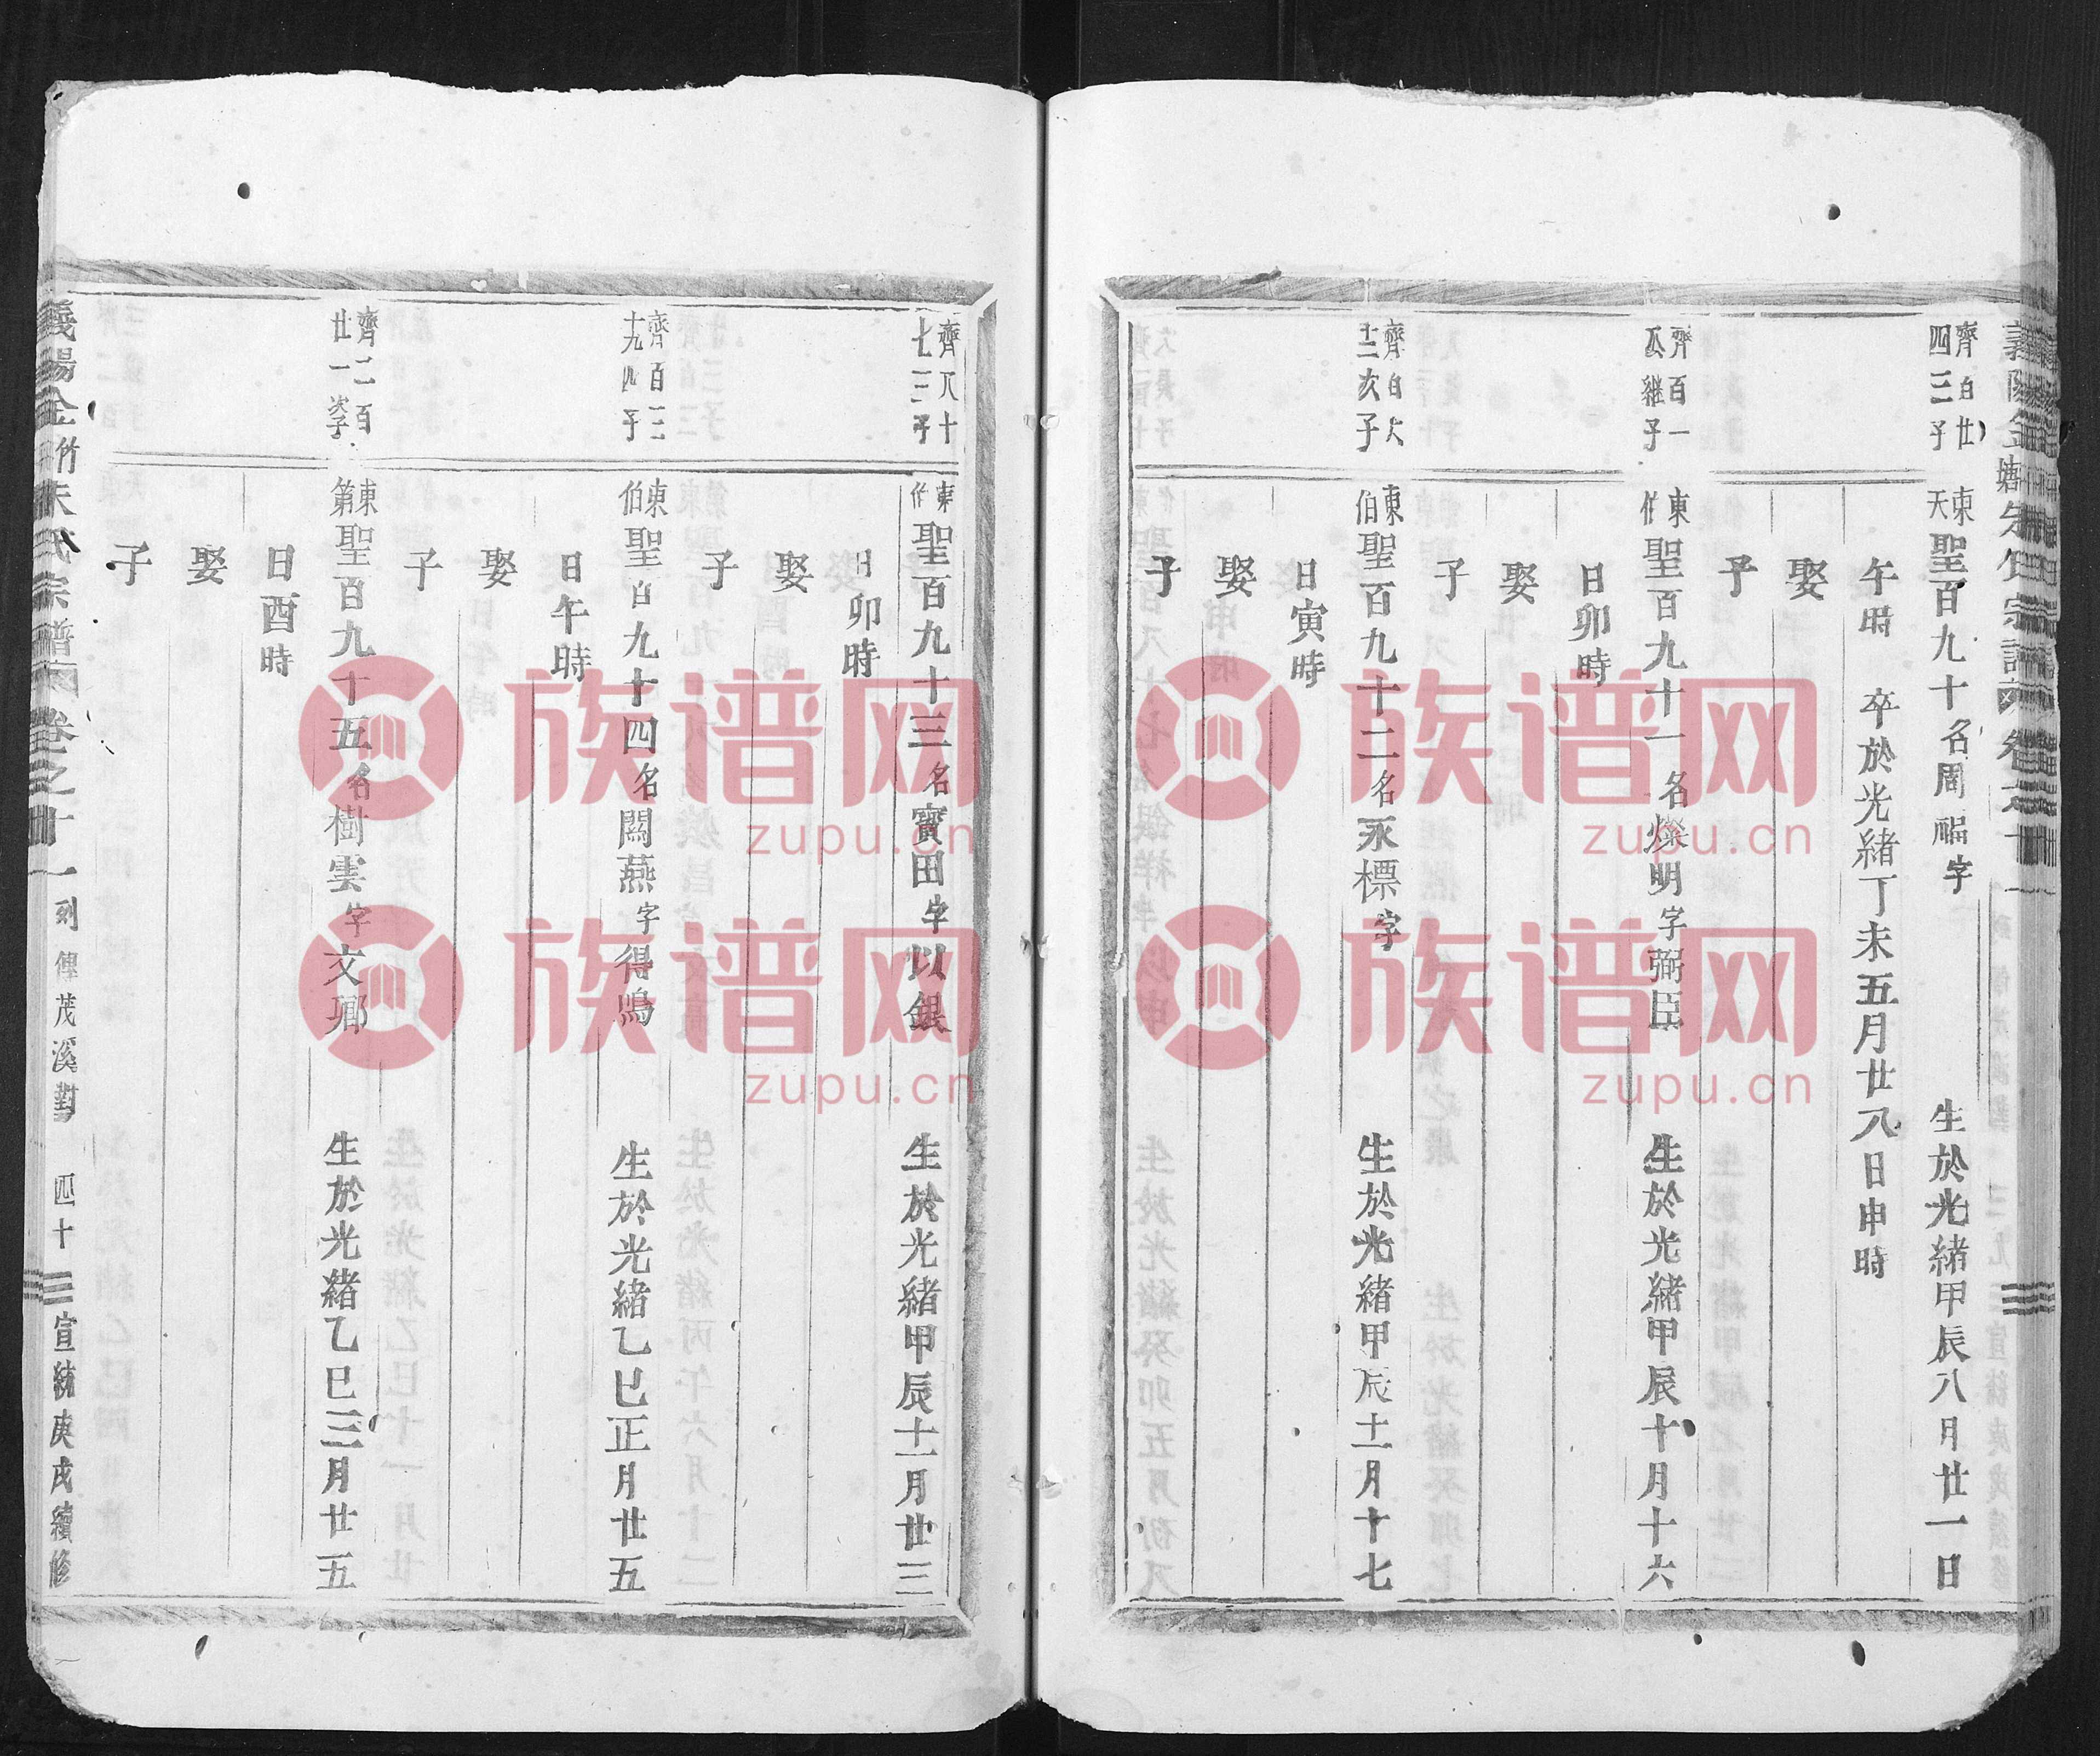 齊百廿
四三子
東
天
聖百九十名周福字
生於光緒甲辰八月廿一日
午時
卒於光緒丁未五月廿八日申時
娶
子
齊百一
繼子
東
聖百九十一名燦明字弼臣
生於光緒甲辰十月十六
日卯時
娶
子
齊百六
十二次子
東
伯
聖百九十二名永標字
生於光緒甲辰十一月十七
日寅時
娶
子
齊八十
七三子
東
伯
聖百九十三名寳田字以銀
生於光緒甲辰十一月廿三
日卯時
娶
子
齊百三
十九四子
東
伯
聖百九十四名關燕字得鳴
生於光緒乙巳正月廿五
日午時
娶
子
齊二百
廿一孥
東
第
聖百九十五名樹雲字文鄉
生於光緒乙巳三月廿五
日酉時
娶
子
義陽金附朱氏宗譜 卷之廿一 列傳茂溪劃 四十 宣統庚戌續修
族谱网
zupu.cn
族谱网
zupu.cn
族谱网
zupu.cn
族谱网
zupu.cn